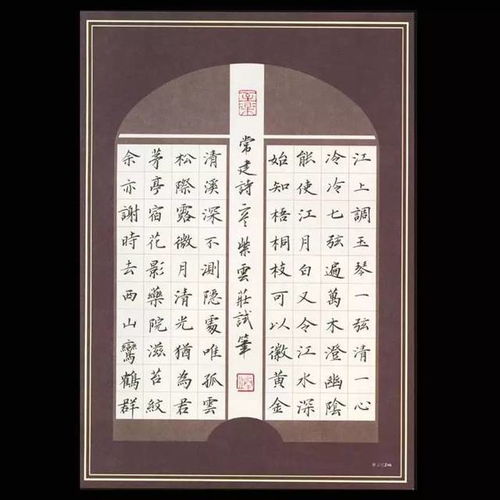 江上調玉琴一弦清一心
冷冷七弦遍萬木澄幽陰
能使江月白又令江水深
始知梧桐枝可以徽黃金
常建詩 紫雲莊試筆
清溪深不測隱處唯孤雲
松際露微月清光猶為君
茅亭宿花影藥院滋苔紋
余亦謝時去西山鸞鶴群